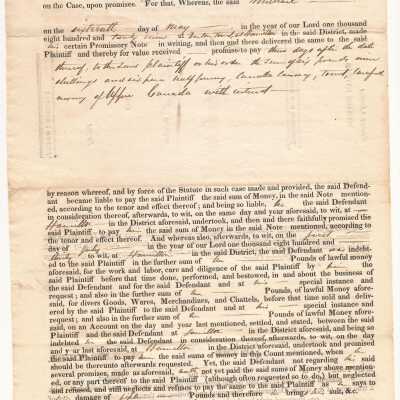 on the Case, upon promises. For that, Whereas, the said
on the sixteenth day of May in the year of our Lord one thousand
eight hundred and in the said District, made
his certain Promissory Note in writing, and then and there delivered the same to the said
Plaintiff and thereby for value received promise to pay three days after the date
thereof, to the said plaintiff or his order the sum of six pounds nine
shillings and six pence half penny, Canada Currency, Lawful
money of Upper Canada with interest
by reason whereof, and by force of the Statute in such case made and provided, the said Defend-
ant became liable to pay the said Plaintiff the said sum of Money, in the said Note mention-
ed, according to the tenor and effect thereof; and being so liable, he the said Defendant
in consideration thereof, afterwards, to wit, on the same day and year aforesaid, to wit, at
Hamilton in the District aforesaid, undertook, and then and there faithfully promised the
said Plaintiff to pay him the said sum of Money in the said Note mentioned, according to
the tenor and effect thereof. And whereas also, afterwards, to wit, on the first
day of July in the year of our Lord one thousand eight hundred and
thirty to wit, at Hamilton in the said District, the said Defendant was indebt-
ed to the said Plaintiff in the further sum of ten Pounds of lawful money
aforesaid, for the work and labor, care and diligence of the said Plaintiff by him the
said Plaintiff before that time done, performed, and bestowed, in and about the business of
the said Defendant and for the said Defendant and at his special instance and
request; and also in the further sum of ten Pounds of Lawful Money afore-
said, for divers Goods, Wares, Merchandizes, and Chattels, before that time sold and deliv-
ered by the said Plaintiff to the said Defendant and at his special instance and
request; and also in the further sum of ten Pounds of Lawful Money afore-
said, on an Account on the day and year last mentioned, settled, and stated, between the said
Plaintiff and the said Defendant at Hamilton in the District aforesaid, and being so
indebted he the said Defendant in consideration thereof, afterwards, to wit, on the day
and year last aforesaid, at Hamilton in the District aforesaid, undertook and promised
the said Plaintiff to pay him the said sums of money in this Count mentioned, when he
should be thereunto afterwards requested. Yet, the said Defendant not regarding his said
several promises, made as aforesaid, hath not yet paid the said sums of Money above mention-
ed, or any part thereof to the said Plaintiff (although often requested so to do) but, neglected
and refused, and still neglects and refuses to pay the same to the said Plaintiff as he says to
damage of Pounds and therefore he brings his suit, &c.